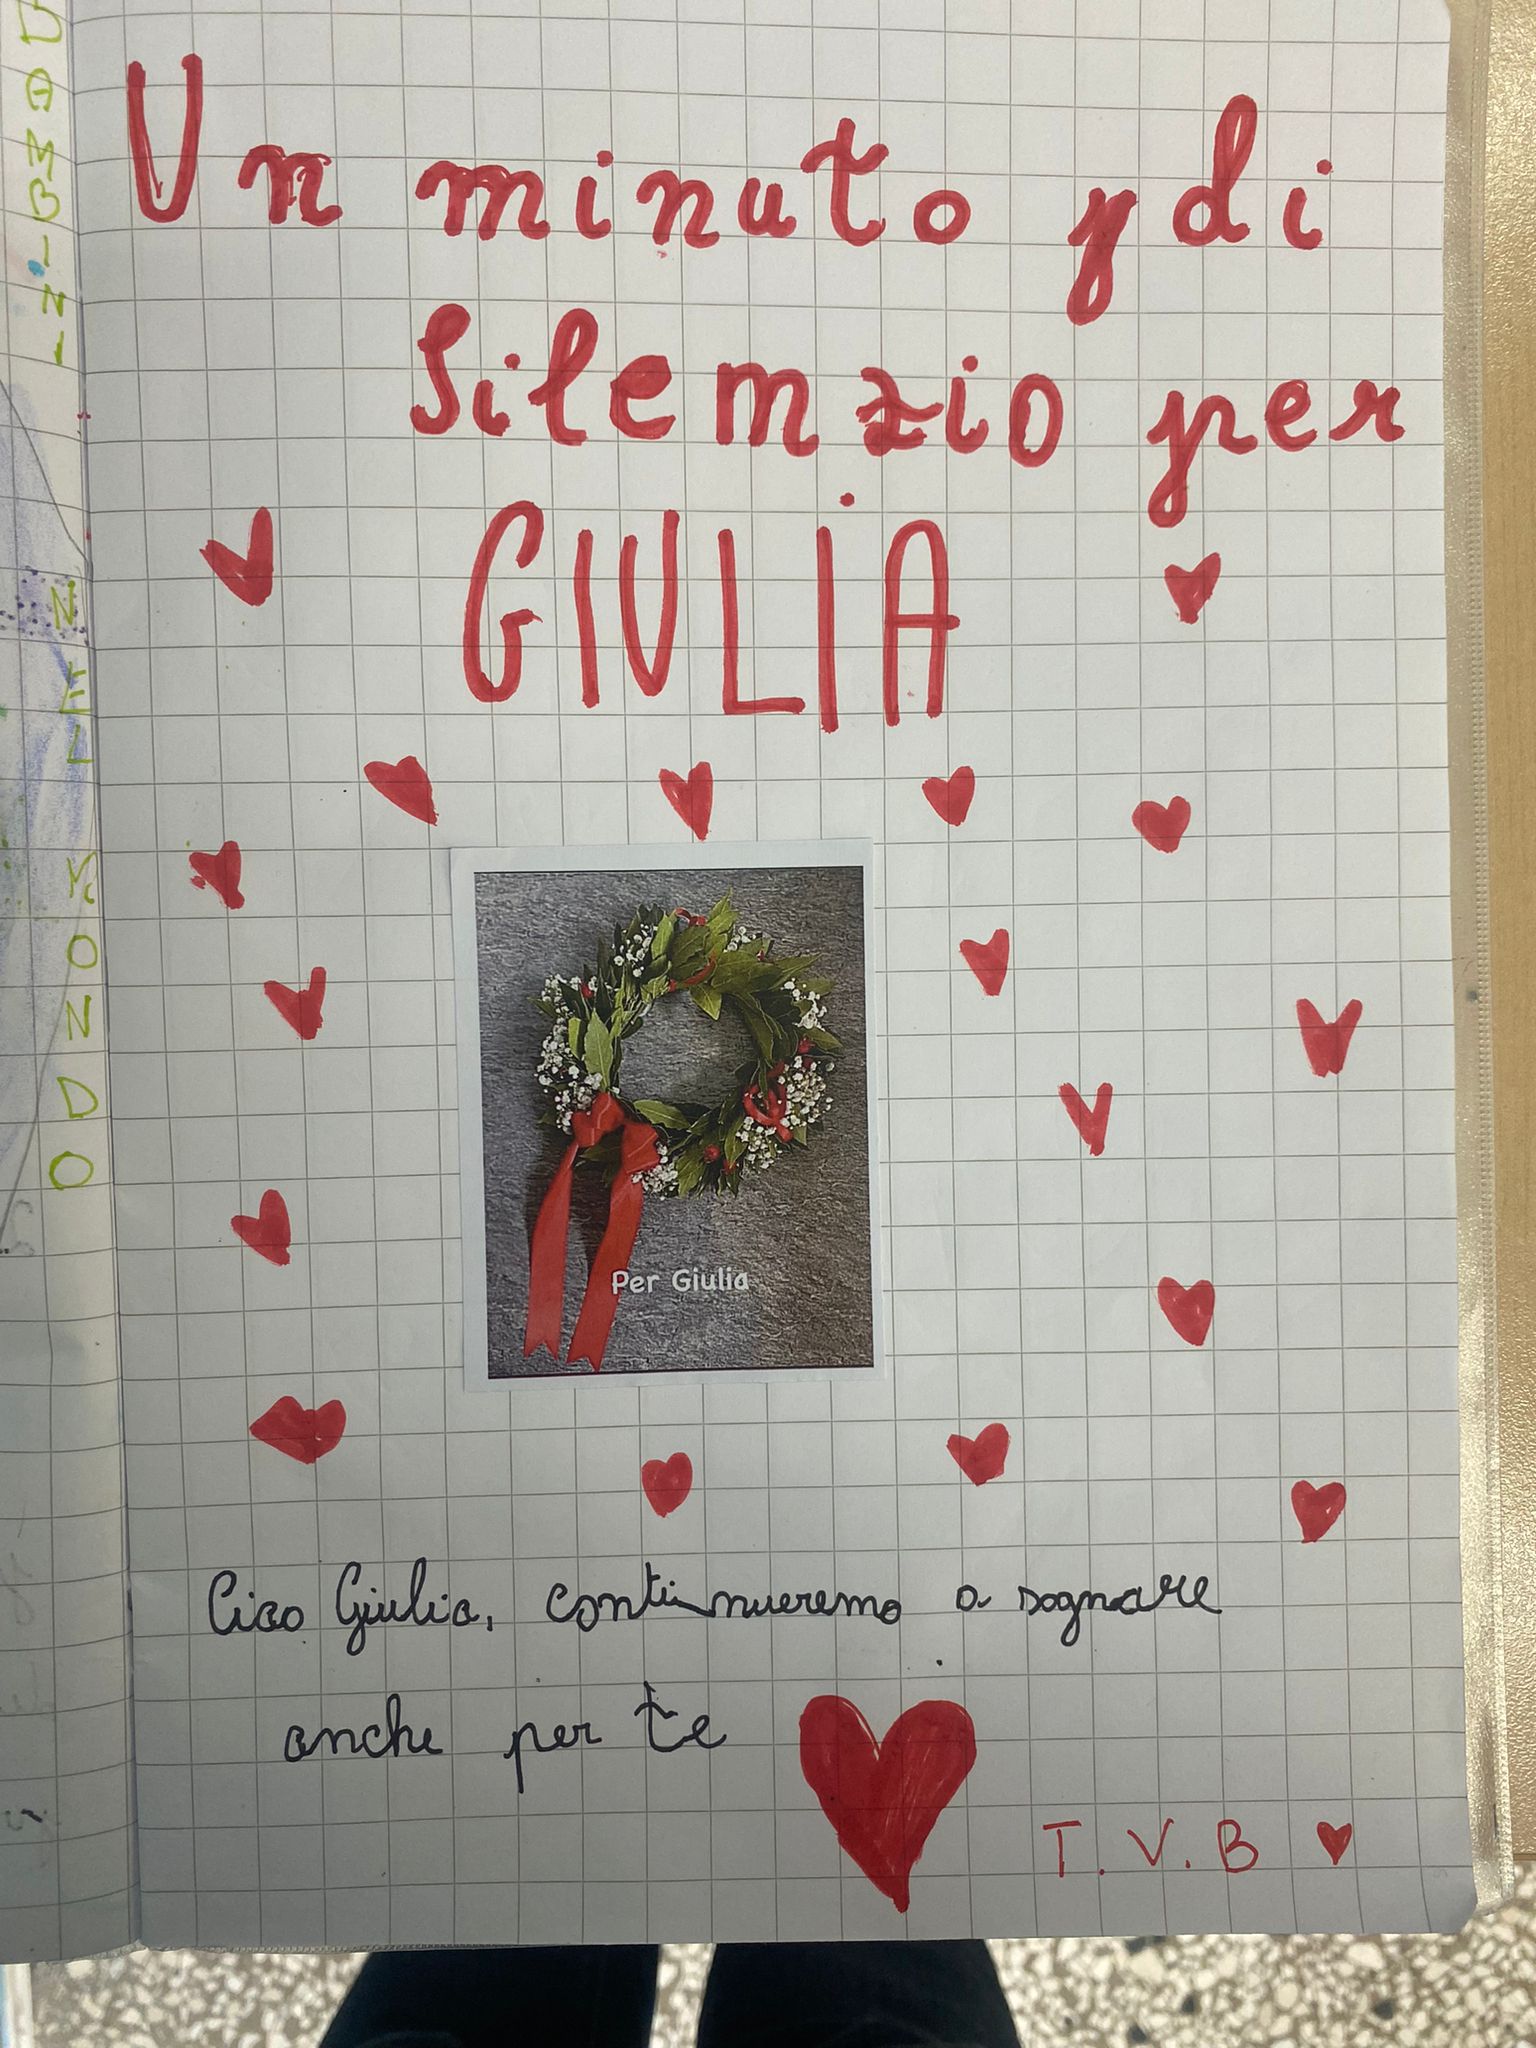 Un minuto y di
Silenzio per
GIULIA
Per Giulia
Ciao Giulia, continueremo a sognare
anche per te
T. V. B
BAMBINI
NEL MONDO